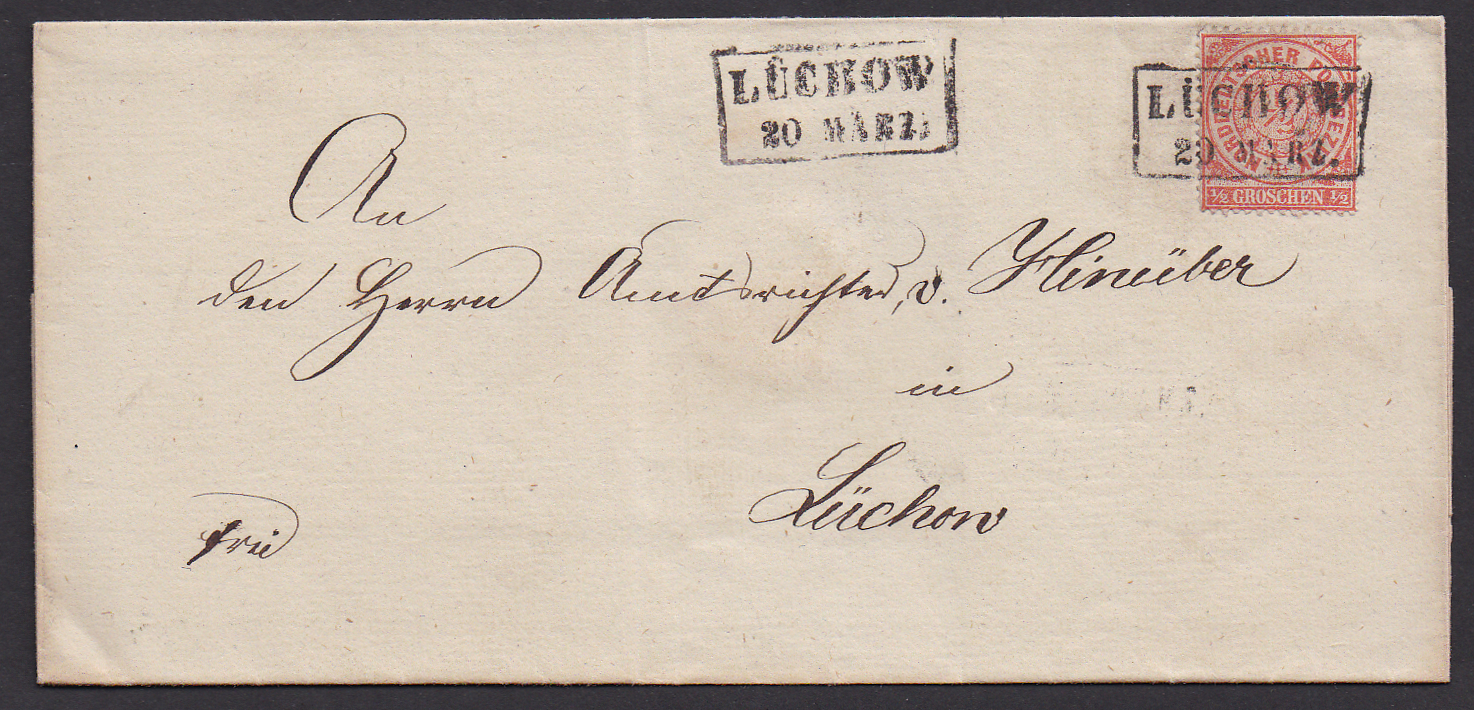 LÜCHOW
20 MÄRZ.
LÜCHOW
20 MÄRZ.
NORDDEUTSCHER POSTBEZIRK
1/2 GROSCHEN 1/2
An
den Herrn Amtsrichter, v. Hinüber
in
Lüchow
frei